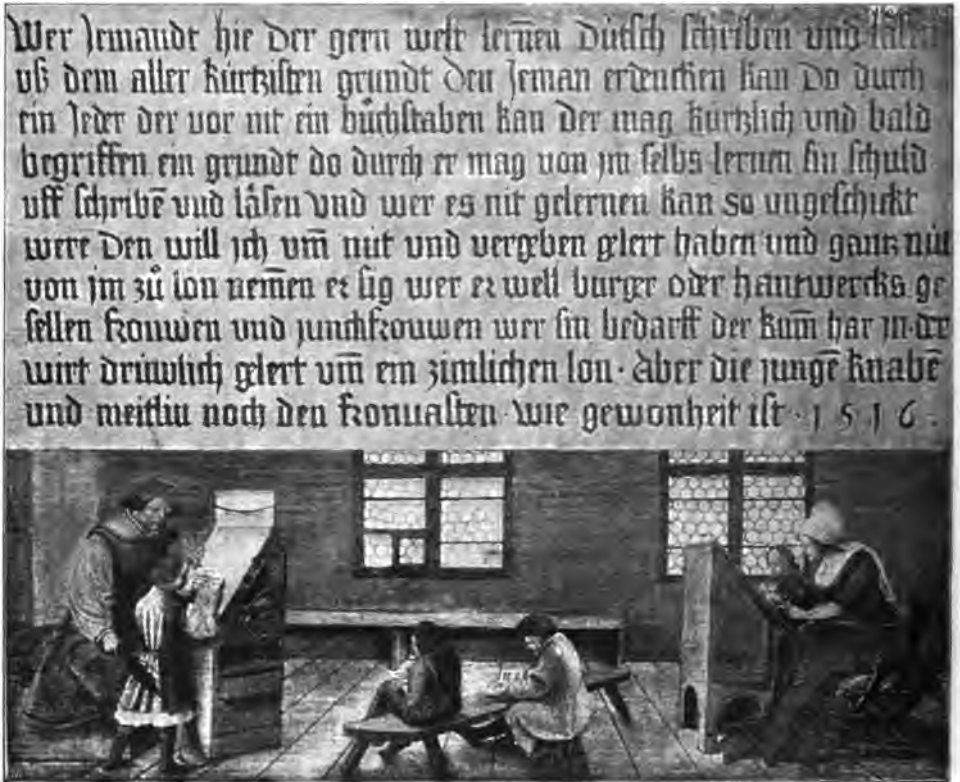 Wer Jemandt hie der gern welt lern̄en Dütsch schriben und läsen
uß dem aller kürtzisten grundt den Jeman erdencken kan Do durch
ein Jeder der vor nit ein bůchstaben kan der mag kürtzlich und bald
begriffen ein grundt do durch er mag von jm selbs lernen sin schuld
uff schribē und läsen und wer es nit gelernen kan so ungeschickt
were Den will jch vm̄ nüt und vergeben gelert haben und gantz nüt
von jm zů lon nem̄en er sig wer er well burger oder hantwercks ge
sellen frouwen und junckfrouwen wer sin bedarff der kum̄ har jn · der
wirt drüwlich gelert vm̄ ein zimlichen lon · Aber die jungē knabē
und meitlin noch den fronuasten wie gewonheit ist · 1 5 1 6 ·